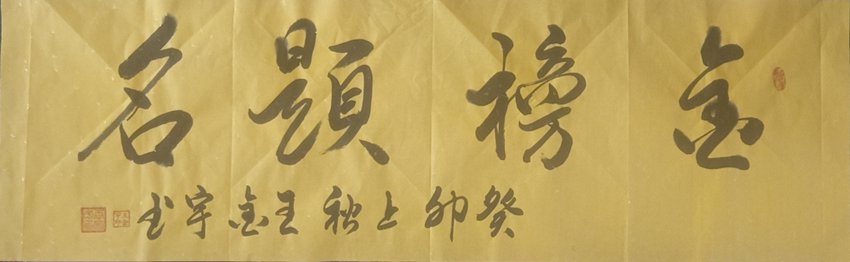 金榜題名
癸卯上秋王金宇书